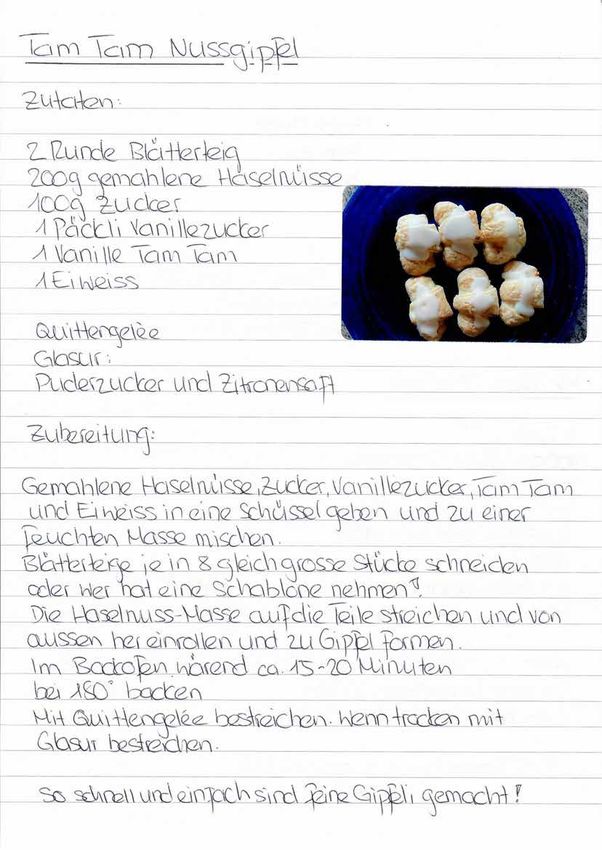 Tam Tam Nussgipfel
Zutaten:
2 Runde Blätterteig
200g gemahlene Haselnüsse
100g Zucker
1 Päckli Vanillezucker
1 Vanille Tam Tam
1 Eiweiss
Quittengelèe
Glasur:
Puderzucker und Zitronensaft
Zubereitung:
Gemahlene Haselnüsse, Zucker, Vanillezucker, Tam Tam
und Eiweiss in eine Schüssel geben und zu einer
feuchten Masse mischen.
Blätterteige je in 8 gleich grosse Stücke schneiden
oder wer hat eine Schablone nehmen!
Die Haselnuss-Masse auf die Teile streichen und von
aussen her einrollen und zu Gipfel formen.
Im Backofen wärend ca. 15-20 Minuten
bei 180° backen
Mit Quittengelée bestreichen. Wenn trocken mit
Glasur bestreichen.
So schnell und einfach sind feine Gipfeli gemacht!